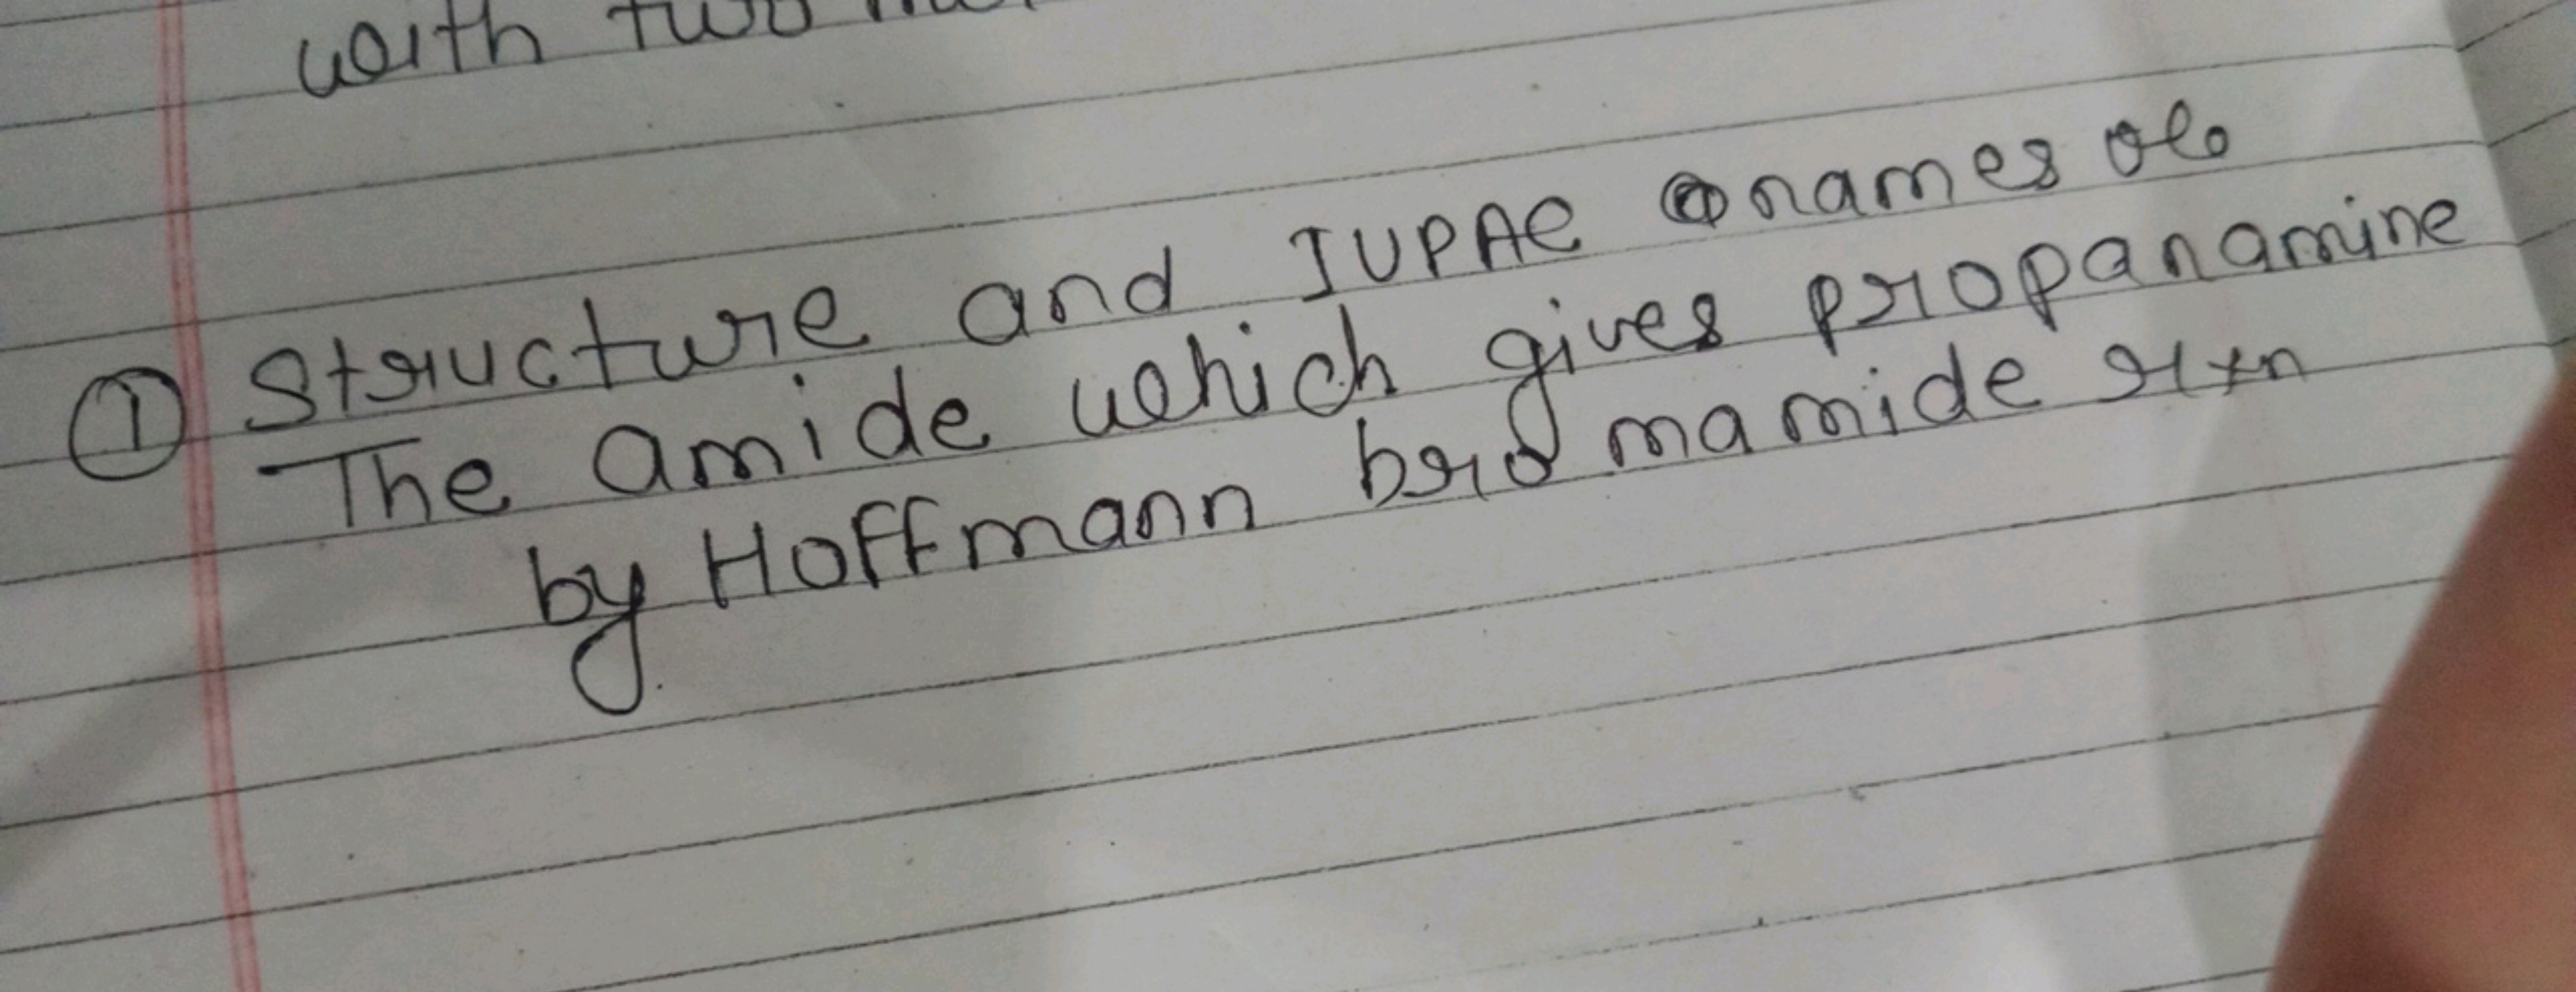 with two
① Structure and IUPAC names of
The amide which gives propanamine
by Hoffmann bromamide rxn